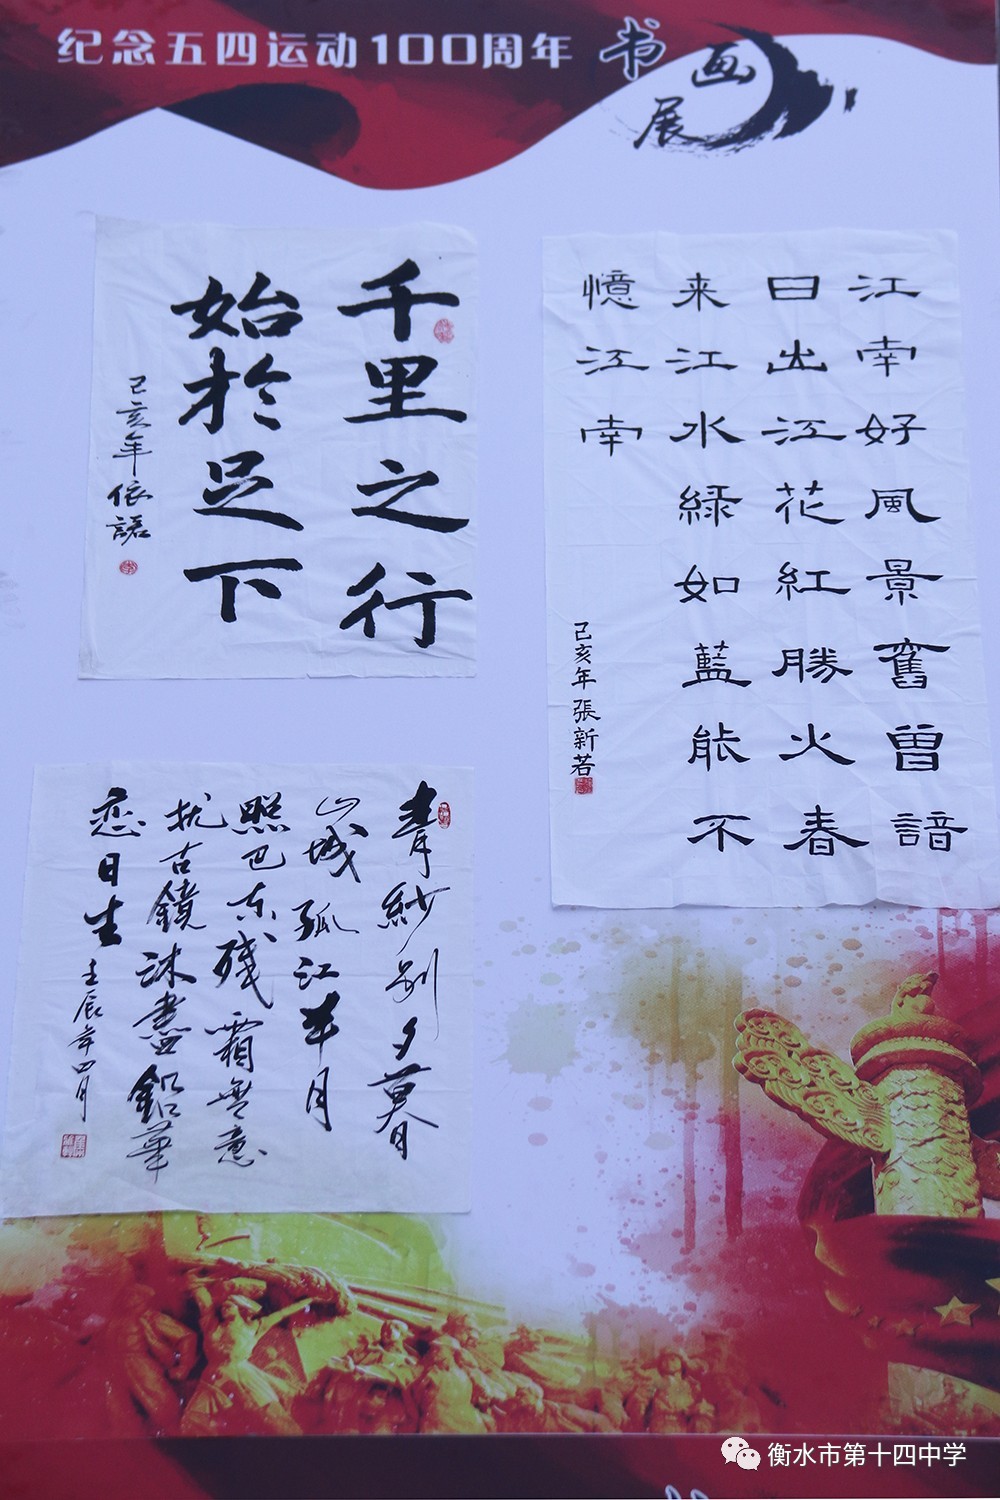 纪念五四运动100周年 书画展
千里之行
始於足下
己亥年 依諾
江南好風景舊曾諳
日出江花紅勝火春
来江水緑如藍能不
憶江南
己亥年張新若
青紗别夕暮
山城孤江半月
照巴东残霜無意
扰古鏡沐盡鉛華
恋日生
壬辰年四月
衡水市第十四中学